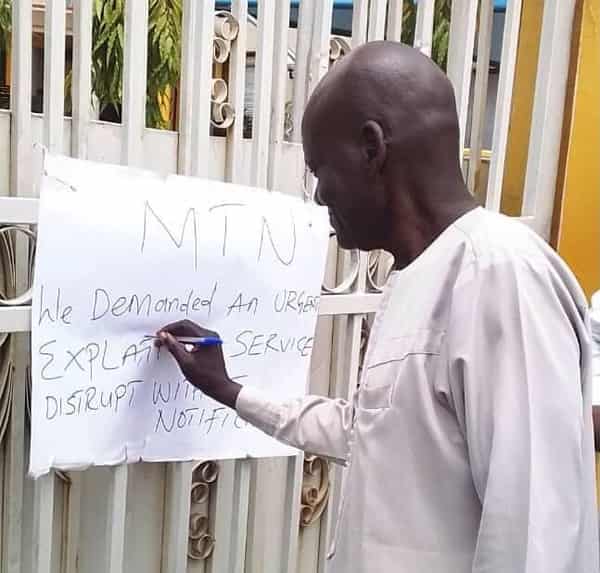 MTN
We DemAnded AN URGENT
EXPLAT SERVICE
DISTRUPT WITH
NOTIFIC